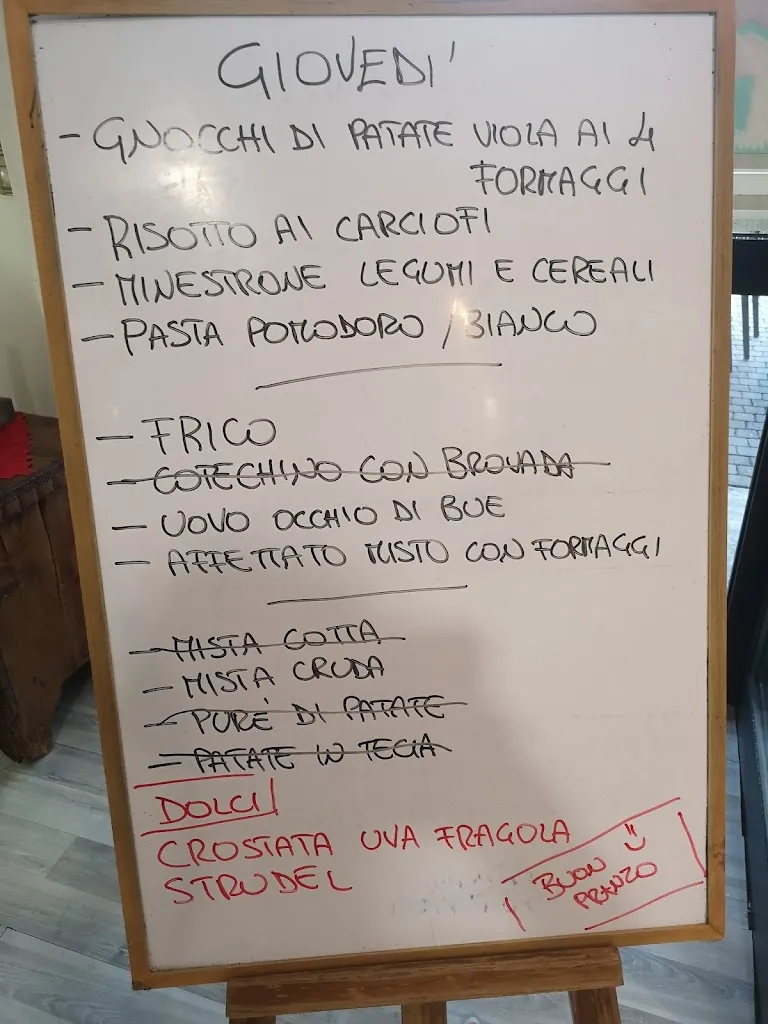 GIOVEDI'
- GNOCCHI DI PATATE VIOLA AI 4
FORMAGGI
- RISOTTO AI CARCIOFI
- MINESTRONE LEGUMI E CEREALI
- PASTA POMODORO / BIANCO
- FRICO
- COTECHINO CON BROVADA
- UOVO OCCHIO DI BUE
- AFFETTATO MISTO CON FORMAGGI
- MISTA COTTA
- MISTA CRUDA
- PURÈ DI PATATE
- PATATE IN TECIA
DOLCI
CROSTATA UVA FRAGOLA
STRUDEL
BUON
PRANZO